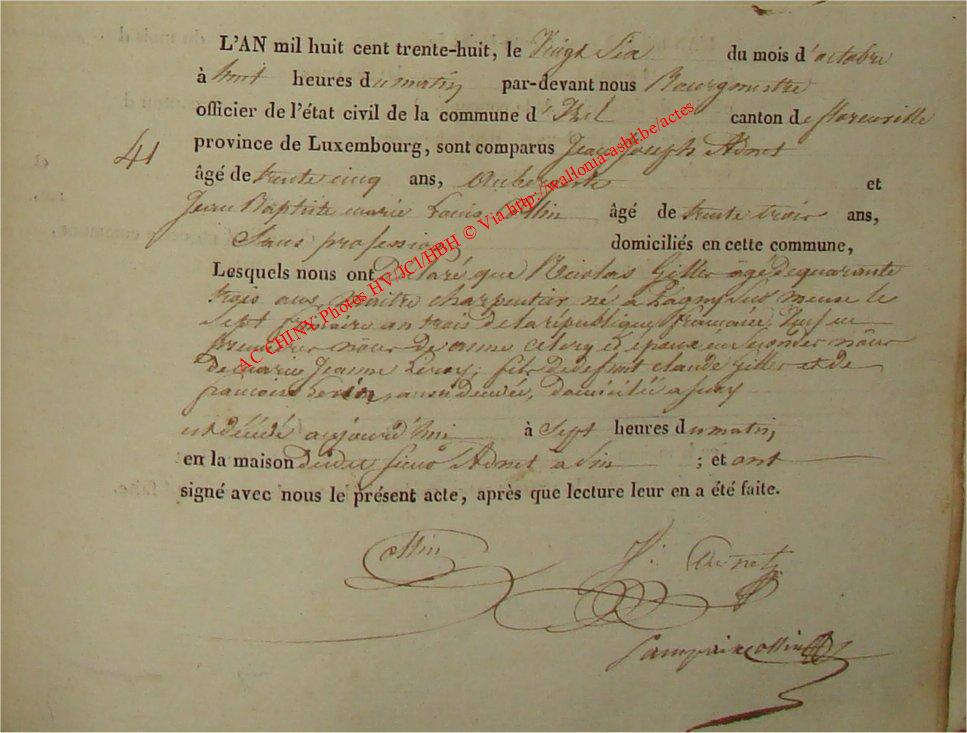 L'AN mil huit cent trente-huit, le Vingt Six du mois d'octobre
à huit heures du matin par-devant nous Bourgmestre
officier de l'état civil de la commune d'Izel canton de florenville
41
province de Luxembourg, sont comparus Jean Joseph Adnet
âgé de trente cinq ans, Aubergiste et
Jean Baptiste marie Louis Ollin âgé de trente trois ans,
Sans profession domiciliés en cette commune,
Lesquels nous ont Déclaré que Nicolas Giller âgé de quarante
trois ans, maitre charpentier né à Lagny Sur meuse le
Sept frimaire an trois de la république française, Veuf en
premier nôces de anne et époux en Secondes nôces
de marie Jeanne Leroy, fils de defunt claude Giller et de
françoise aussi décédée, domicilié a
est décédé aujourd'hui à Sept heures du matin,
en la maison dudit Sieur Adnet a ; et ont
signé avec nous le présent acte, après que lecture leur en a été faite.
ollin J. Adnet
ollin
AC CHINY Photos HV/JCI/HBH © Via http://wallonia-asbl.be/actes